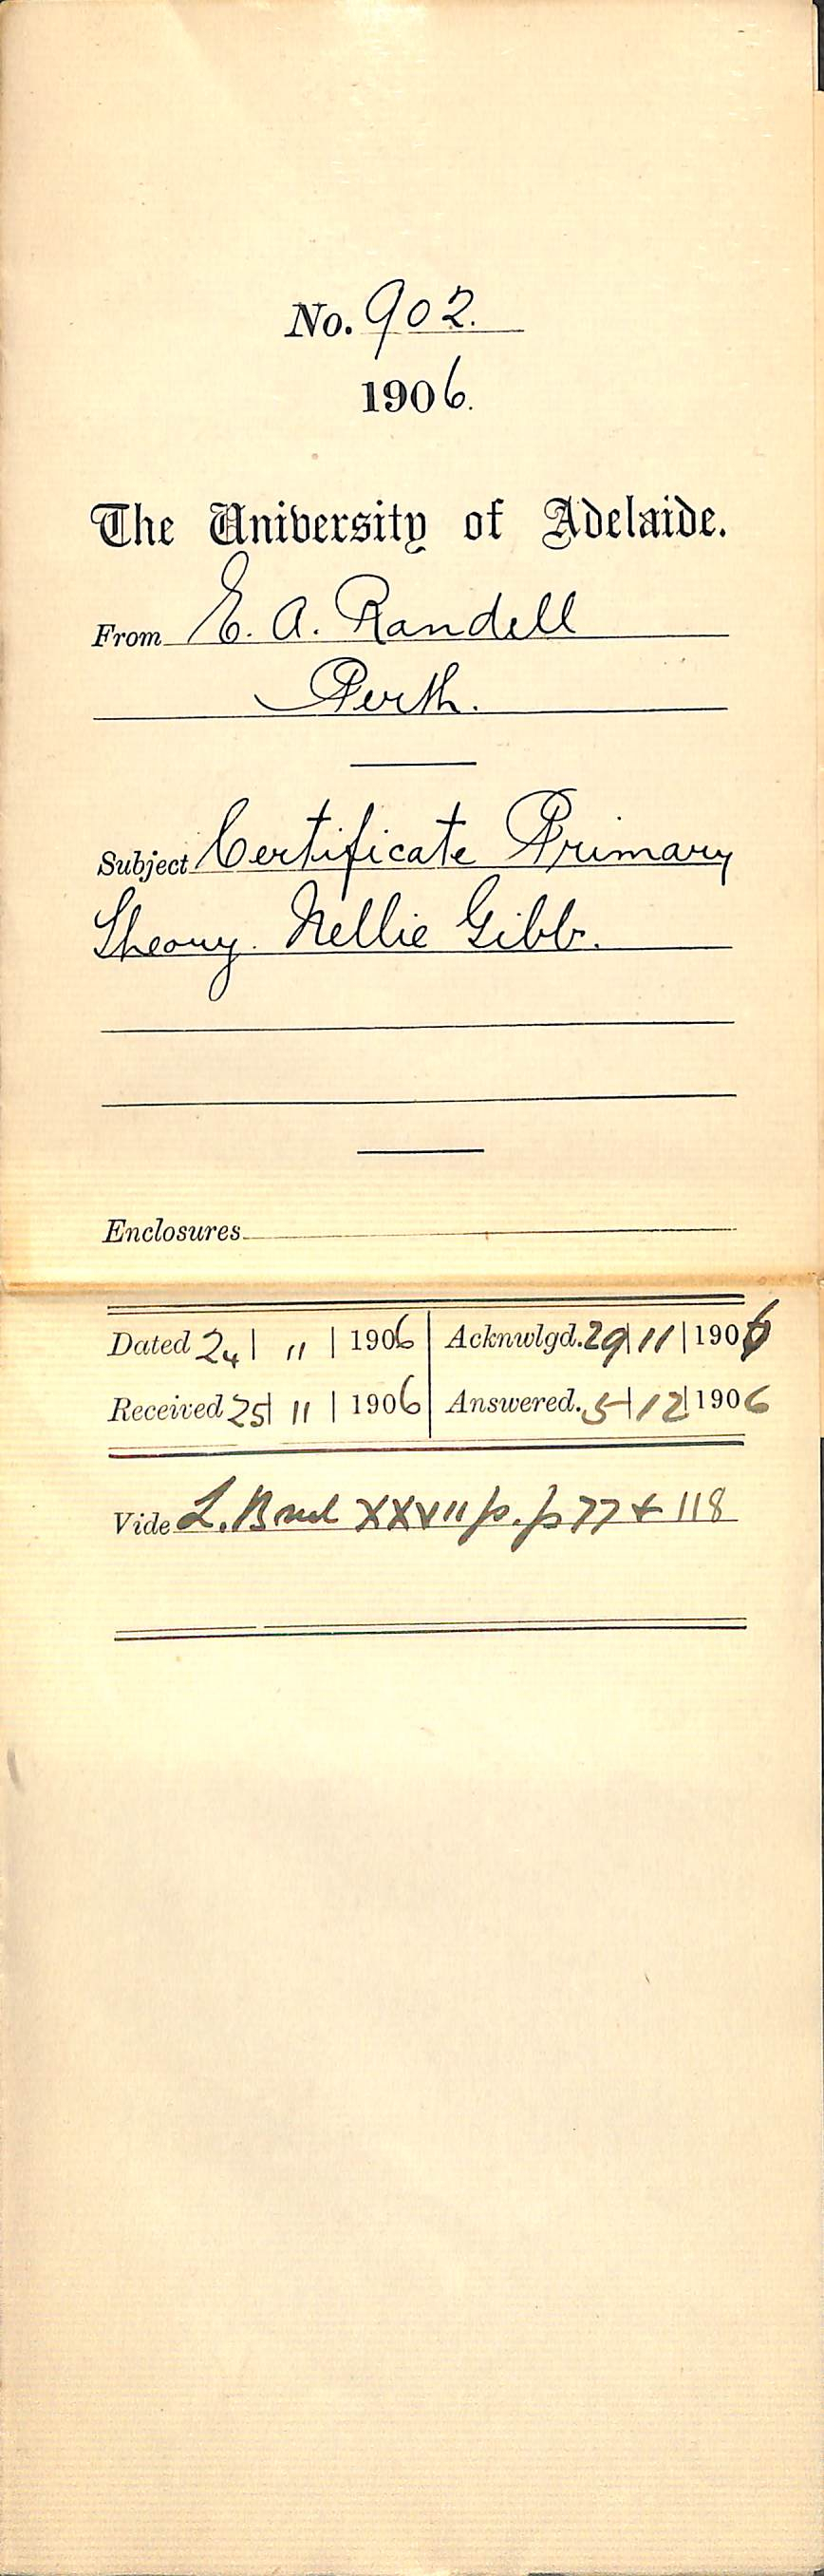 No. 902.
1906.
The University of Adelaide.
From E. A. Randell
Perth.
Subject Certificate Primary
Theory. Nellie Gibb.
Enclosures
Dated 24 | 11 | 1906 | Acknwlgd. 29 | 11 | 1906
Received 25 | 11 | 1906 | Answered. 5 | 12 | 1906
Vide L. B XXVII p. p 77 + 118